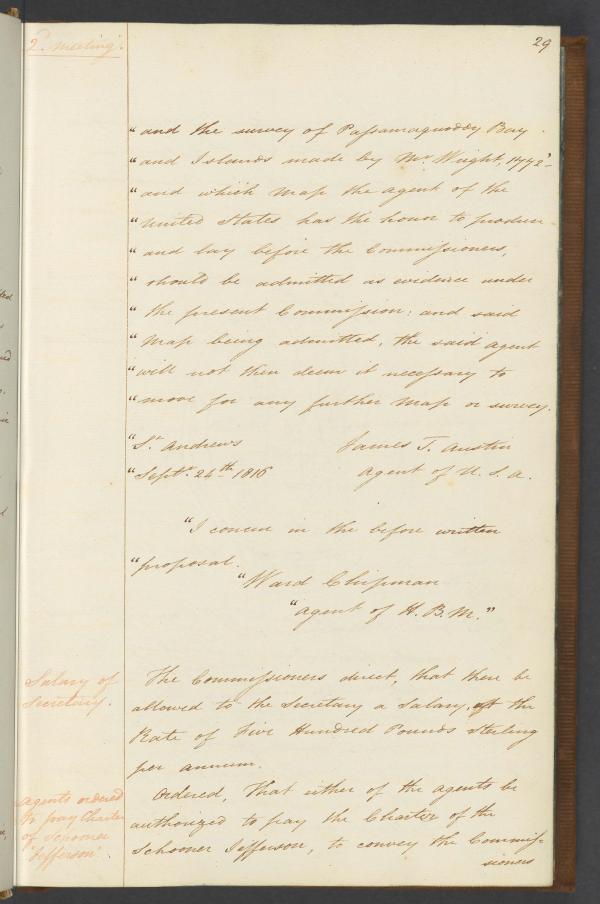 2d. Meeting.
29
" and the survey of Passamaquoddy Bay
" and Islands made by Mr. Wright, 1772,
" and which Map the agent of the
" United States has the honor to produce
" and lay before the Commissioners,
" should be admitted as evidence under
" the present Commission: and said
" Map being admitted, the said agent
" will not then deem it necessary to
" move for any further Map or survey.
" St. Andrews James T. Austin
" Septr. 24th 1816 Agent of U. S. A.
" I concur in the before written
" proposal.
" Ward Chipman
" agent of H. B. M."
Salary of
Secretary.
The Commissioners direct, that there be
allowed to the Secretary a Salary, at the
Rate of Five Hundred Pounds Sterling
per annum.
Agents ordered
to pay Charter
of Schooner
'Jefferson'
Ordered, That either of the agents be
authorized to pay the Charter of the
Schooner Jefferson, to convey the Commis-
sioners